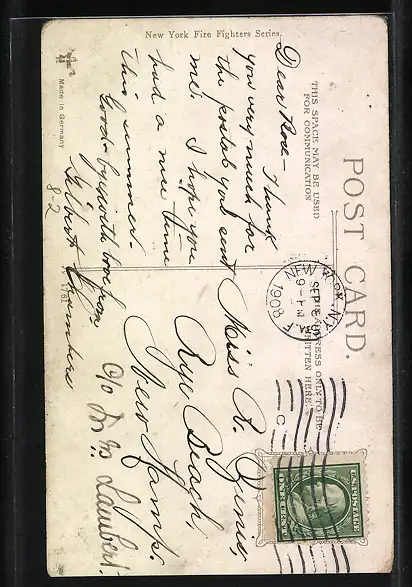 New York Fire Fighters Series.
Made in Germany
THIS SPACE MAY BE USED
FOR COMMUNICATION
POST CARD.
THE ADDRESS ONLY TO BE
WRITTEN HERE.
Dear Rose - Thank
you very much for
the postal you sent
me. I hope you
had a nice time
this summer.
Good-bye with love from
Gilbert
8-2
1761
NEW YORK, N.Y.
SEP 8
9-PM
1908
Miss R.
Rye Beach,
New Hamp.
c/o Mrs. Lambert.
U.S. POSTAGE
ONE CENT
C